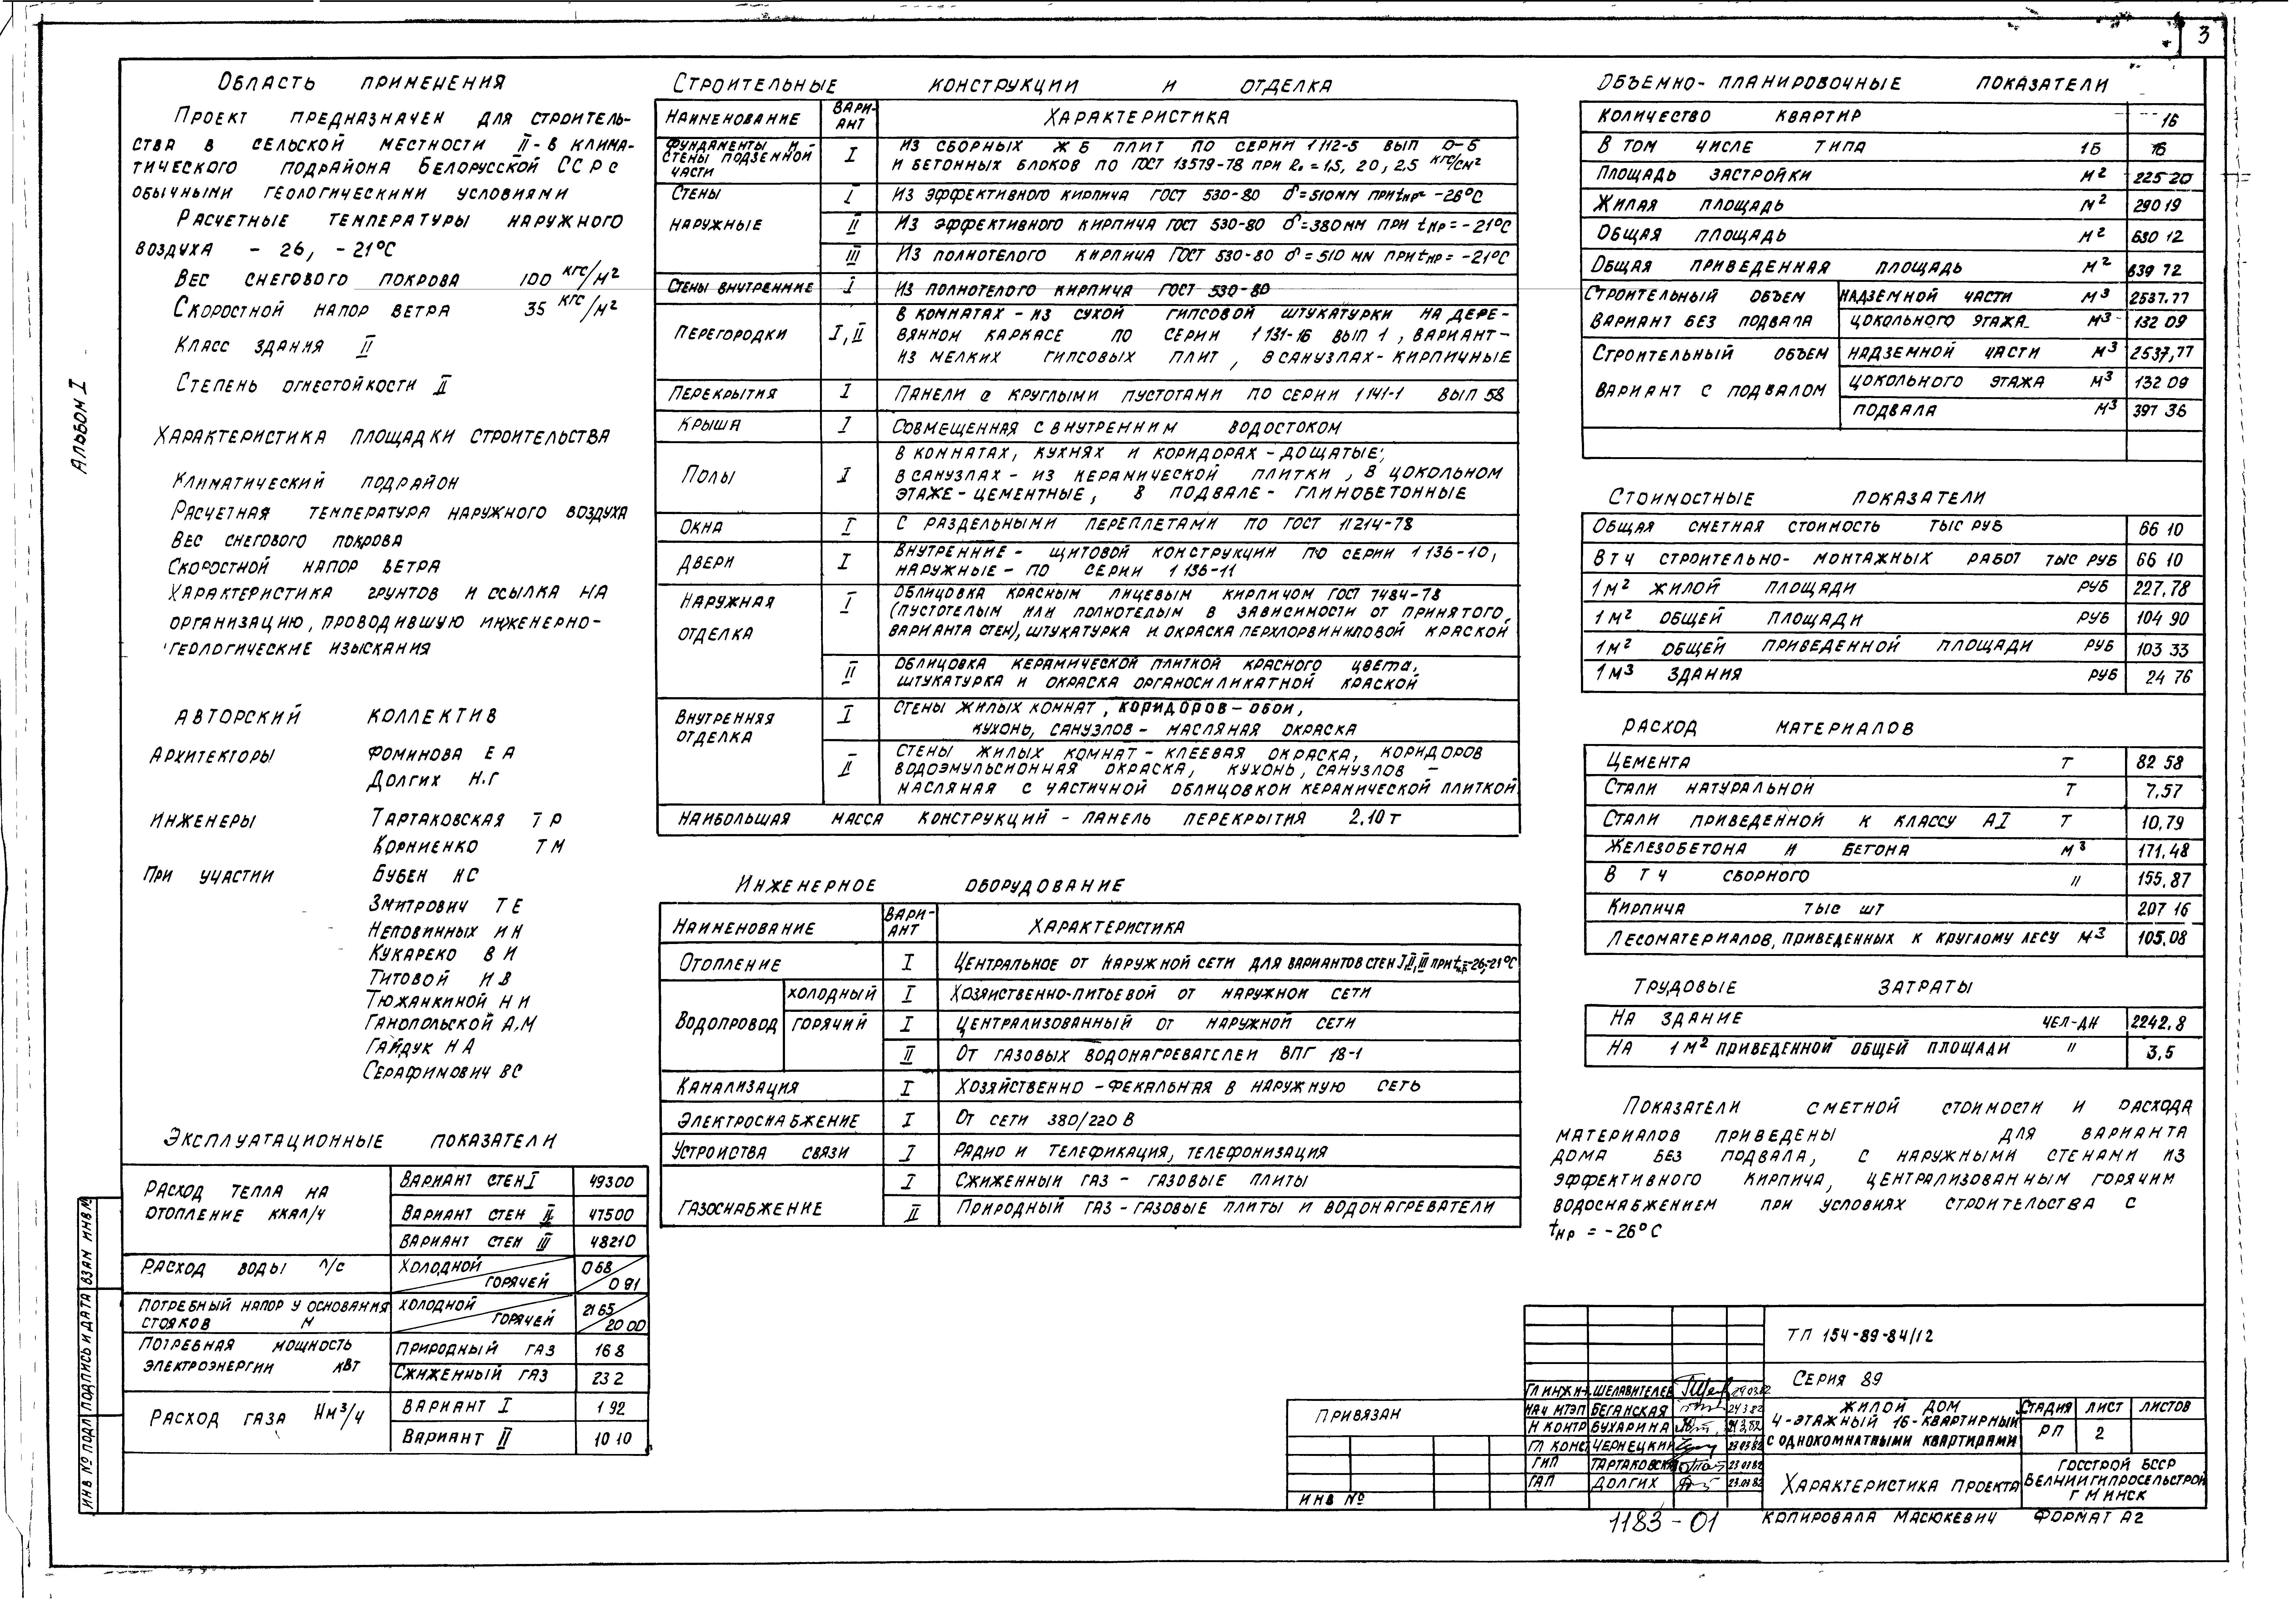 3
Альбом I
Область применения
Проект предназначен для строитель-
ства в сельской местности II-в клима-
тического подрайона Белорусской ССР с
обычными геологическими условиями
Расчетные температуры наружного
воздуха - 26, - 21°С
Вес снегового покрова 100 кгс/м²
Скоростной напор ветра 35 кгс/м²
Класс здания II
Степень огнестойкости II
Характеристика площадки строительства
Климатический подрайон
Расчетная температура наружного воздуха
Вес снегового покрова
Скоростной напор ветра
Характеристика грунтов и ссылка на
организацию, проводившую инженерно-
геологические изыскания
Авторский коллектив
Архитекторы Фоминова Е А
Долгих Н.Г
Инженеры Тартаковская Т Р
Корниенко Т М
При участии Бубен Н С
Змитрович Т Е
Неповинных И Н
Кукареко В И
Титовой И В
Тюжанкиной Н И
Ганопольской А.М
Гайдук Н А
Серафимович В С
Эксплуатационные показатели
Расход тепла на отопление ккал/ч Вариант стен I 49300
Вариант стен II 47500
Вариант стен III 48210
Расход воды л/с холодной / горячей 0 68 / 0 91
Потребный напор у основания стояков м холодной / горячей 21 65 / 20 00
Потребная мощность электроэнергии кВт Природный газ 16 8
Сжиженный газ 23 2
Расход газа Нм³/ч Вариант I 1 92
Вариант II 10 10
Строительные конструкции и отделка
Наименование Вари-ант Характеристика
Фундаменты и стены подземной части I Из сборных ж б плит по серии 1 112-5 вып 0-5
и бетонных блоков по ГОСТ 13579-78 при R₀ = 1,5, 2,0, 2,5 кгс/см²
Стены I Из эффективного кирпича ГОСТ 530-80 δ=510мм при tнр= -26°С
наружные II Из эффективного кирпича ГОСТ 530-80 δ=380мм при tнр= -21°С
III Из полнотелого кирпича ГОСТ 530-80 δ=510 мм при tнр= -21°С
Стены внутренние I Из полнотелого кирпича ГОСТ 530-80
Перегородки I, II В комнатах - из сухой гипсовой штукатурки на дере-
вянном каркасе по серии 1 131-16 вып 1, вариант-
из мелких гипсовых плит, в санузлах - кирпичные
Перекрытия I Панели с круглыми пустотами по серии 1 141-1 вып 58
Крыша I Совмещенная с внутренним водостоком
Полы I В комнатах, кухнях и коридорах - дощатые,
в санузлах - из керамической плитки, в цокольном
этаже - цементные, в подвале - глинобетонные
Окна I С раздельными переплетами по ГОСТ 11214-78
Двери I Внутренние - щитовой конструкции по серии 1 136-10,
наружные - по серии 1 136-11
Наружная отделка I Облицовка красным лицевым кирпичом ГОСТ 7484-78
(пустотелым или полнотелым в зависимости от принятого
варианта стен), штукатурка и окраска перхлорвиниловой краской
II Облицовка керамической плиткой красного цвета,
штукатурка и окраска органосиликатной краской
Внутренняя отделка I Стены жилых комнат, коридоров - обои,
кухонь, санузлов - масляная окраска
II Стены жилых комнат - клеевая окраска, коридоров
водоэмульсионная окраска, кухонь, санузлов -
масляная с частичной облицовкой керамической плиткой
Наибольшая масса конструкций - панель перекрытия 2,10 т
Инженерное оборудование
Наименование Вари-ант Характеристика
Отопление I Центральное от наружной сети для вариантов стен I, II, III при tнр=-26,-21°С
Водопровод холодный I Хозяйственно-питьевой от наружной сети
горячий I Централизованный от наружной сети
II От газовых водонагревателей ВПГ 18-1
Канализация I Хозяйственно-фекальная в наружную сеть
Электроснабжение I От сети 380/220 В
Устройства связи I Радио и телефикация, телефонизация
Газоснабжение I Сжиженный газ - газовые плиты
II Природный газ - газовые плиты и водонагреватели
Объемно-планировочные показатели
Количество квартир 16
В том числе типа 1Б 16
Площадь застройки м² 225 20
Жилая площадь м² 290 19
Общая площадь м² 630 12
Общая приведенная площадь м² 639 72
Строительный объем вариант без подвала надземной части м³ 2537.77
цокольного этажа м³ 132 09
Строительный объем вариант с подвалом надземной части м³ 2537,77
цокольного этажа м³ 132 09
подвала м³ 397 36
Стоимостные показатели
Общая сметная стоимость тыс руб 66 10
В т ч строительно-монтажных работ тыс руб 66 10
1 м² жилой площади руб 227,78
1 м² общей площади руб 104 90
1 м² общей приведенной площади руб 103 33
1 м³ здания руб 24 76
Расход материалов
Цемента т 82 58
Стали натуральной т 7,57
Стали приведенной к классу АI т 10,79
Железобетона и бетона м³ 171,48
В т ч сборного " 155,87
Кирпича тыс шт 207 16
Лесоматериалов, приведенных к круглому лесу м³ 105,08
Трудовые затраты
На здание чел-дн 2242,8
На 1 м² приведенной общей площади " 3,5
Показатели сметной стоимости и расхода
материалов приведены для варианта
дома без подвала, с наружными стенами из
эффективного кирпича, централизованным горячим
водоснабжением при условиях строительства с
tнр = -26°С
Инв № подл Подпись и дата Взам инв №
Привязан
Инв №
Гл инж ин. Шелавителев 24.03.82
Нач МТЭП Беганская 24 3 82
Н контр Бухарина 24.3.82
Гл конс Чернецкий 23 03 82
ГИП Тартаковская 23.03.82
ГАП Долгих 23.03.82
ТП 154-89-84/12
Серия 89
Жилой дом
4-этажный 16-квартирный
с однокомнатными квартирами
Стадия Лист Листов
РП 2
Характеристика проекта
Госстрой БССР
БелНИИгипросельстрой
г Минск
1183-01
Копировала Масюкевич Формат А2